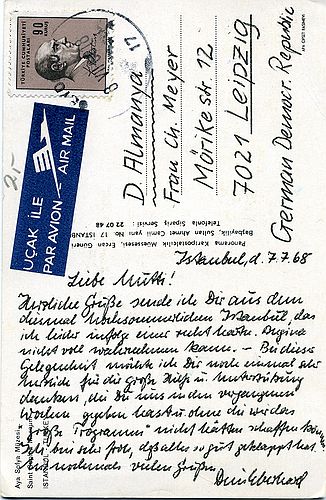 TÜRKİYE CUMHURİYETİ
POSTALARI
90
KURUŞ
17
UÇAK İLE
PAR AVION - AIR MAIL
D. Almanya
Frau Ch. Meyer
Mörikestr. 12
7021 Leipzig
German Democr. Republic
Panorama Kartpostalcilik Müessesesi, Ercan Güneri
Başbayilik, Sultan Ahmet Camii yanı No. 17 İSTANB
Telefonla Sipariş Servisi : 22 07 48
Aya Sofya Müzesi
Saint Sophia Museum
İSTANBUL - TURKEY
Istanbul, d. 7.7.68
Liebe Mutti!
Herzliche Grüße sende ich Dir aus dem
diesmal hochsommerlichen Istanbul, das
ich leider infolge einer
nicht voll wahrnehmen kann. – Bei dieser
Gelegenheit möchte ich Dir noch einmal sehr
für die große Hilfe u. Unterstützung
danken, die Du uns in den vergangenen
Wochen gegeben hast u. ohne die wir das
"Große Programm" nicht hätten schaffen
Ich bin sehr froh, daß alles so gut geklappt hat.
nochmals vielen Grüßen
Dein Eberhard